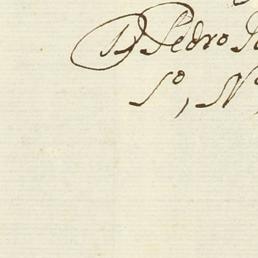 D Pedro
So, No